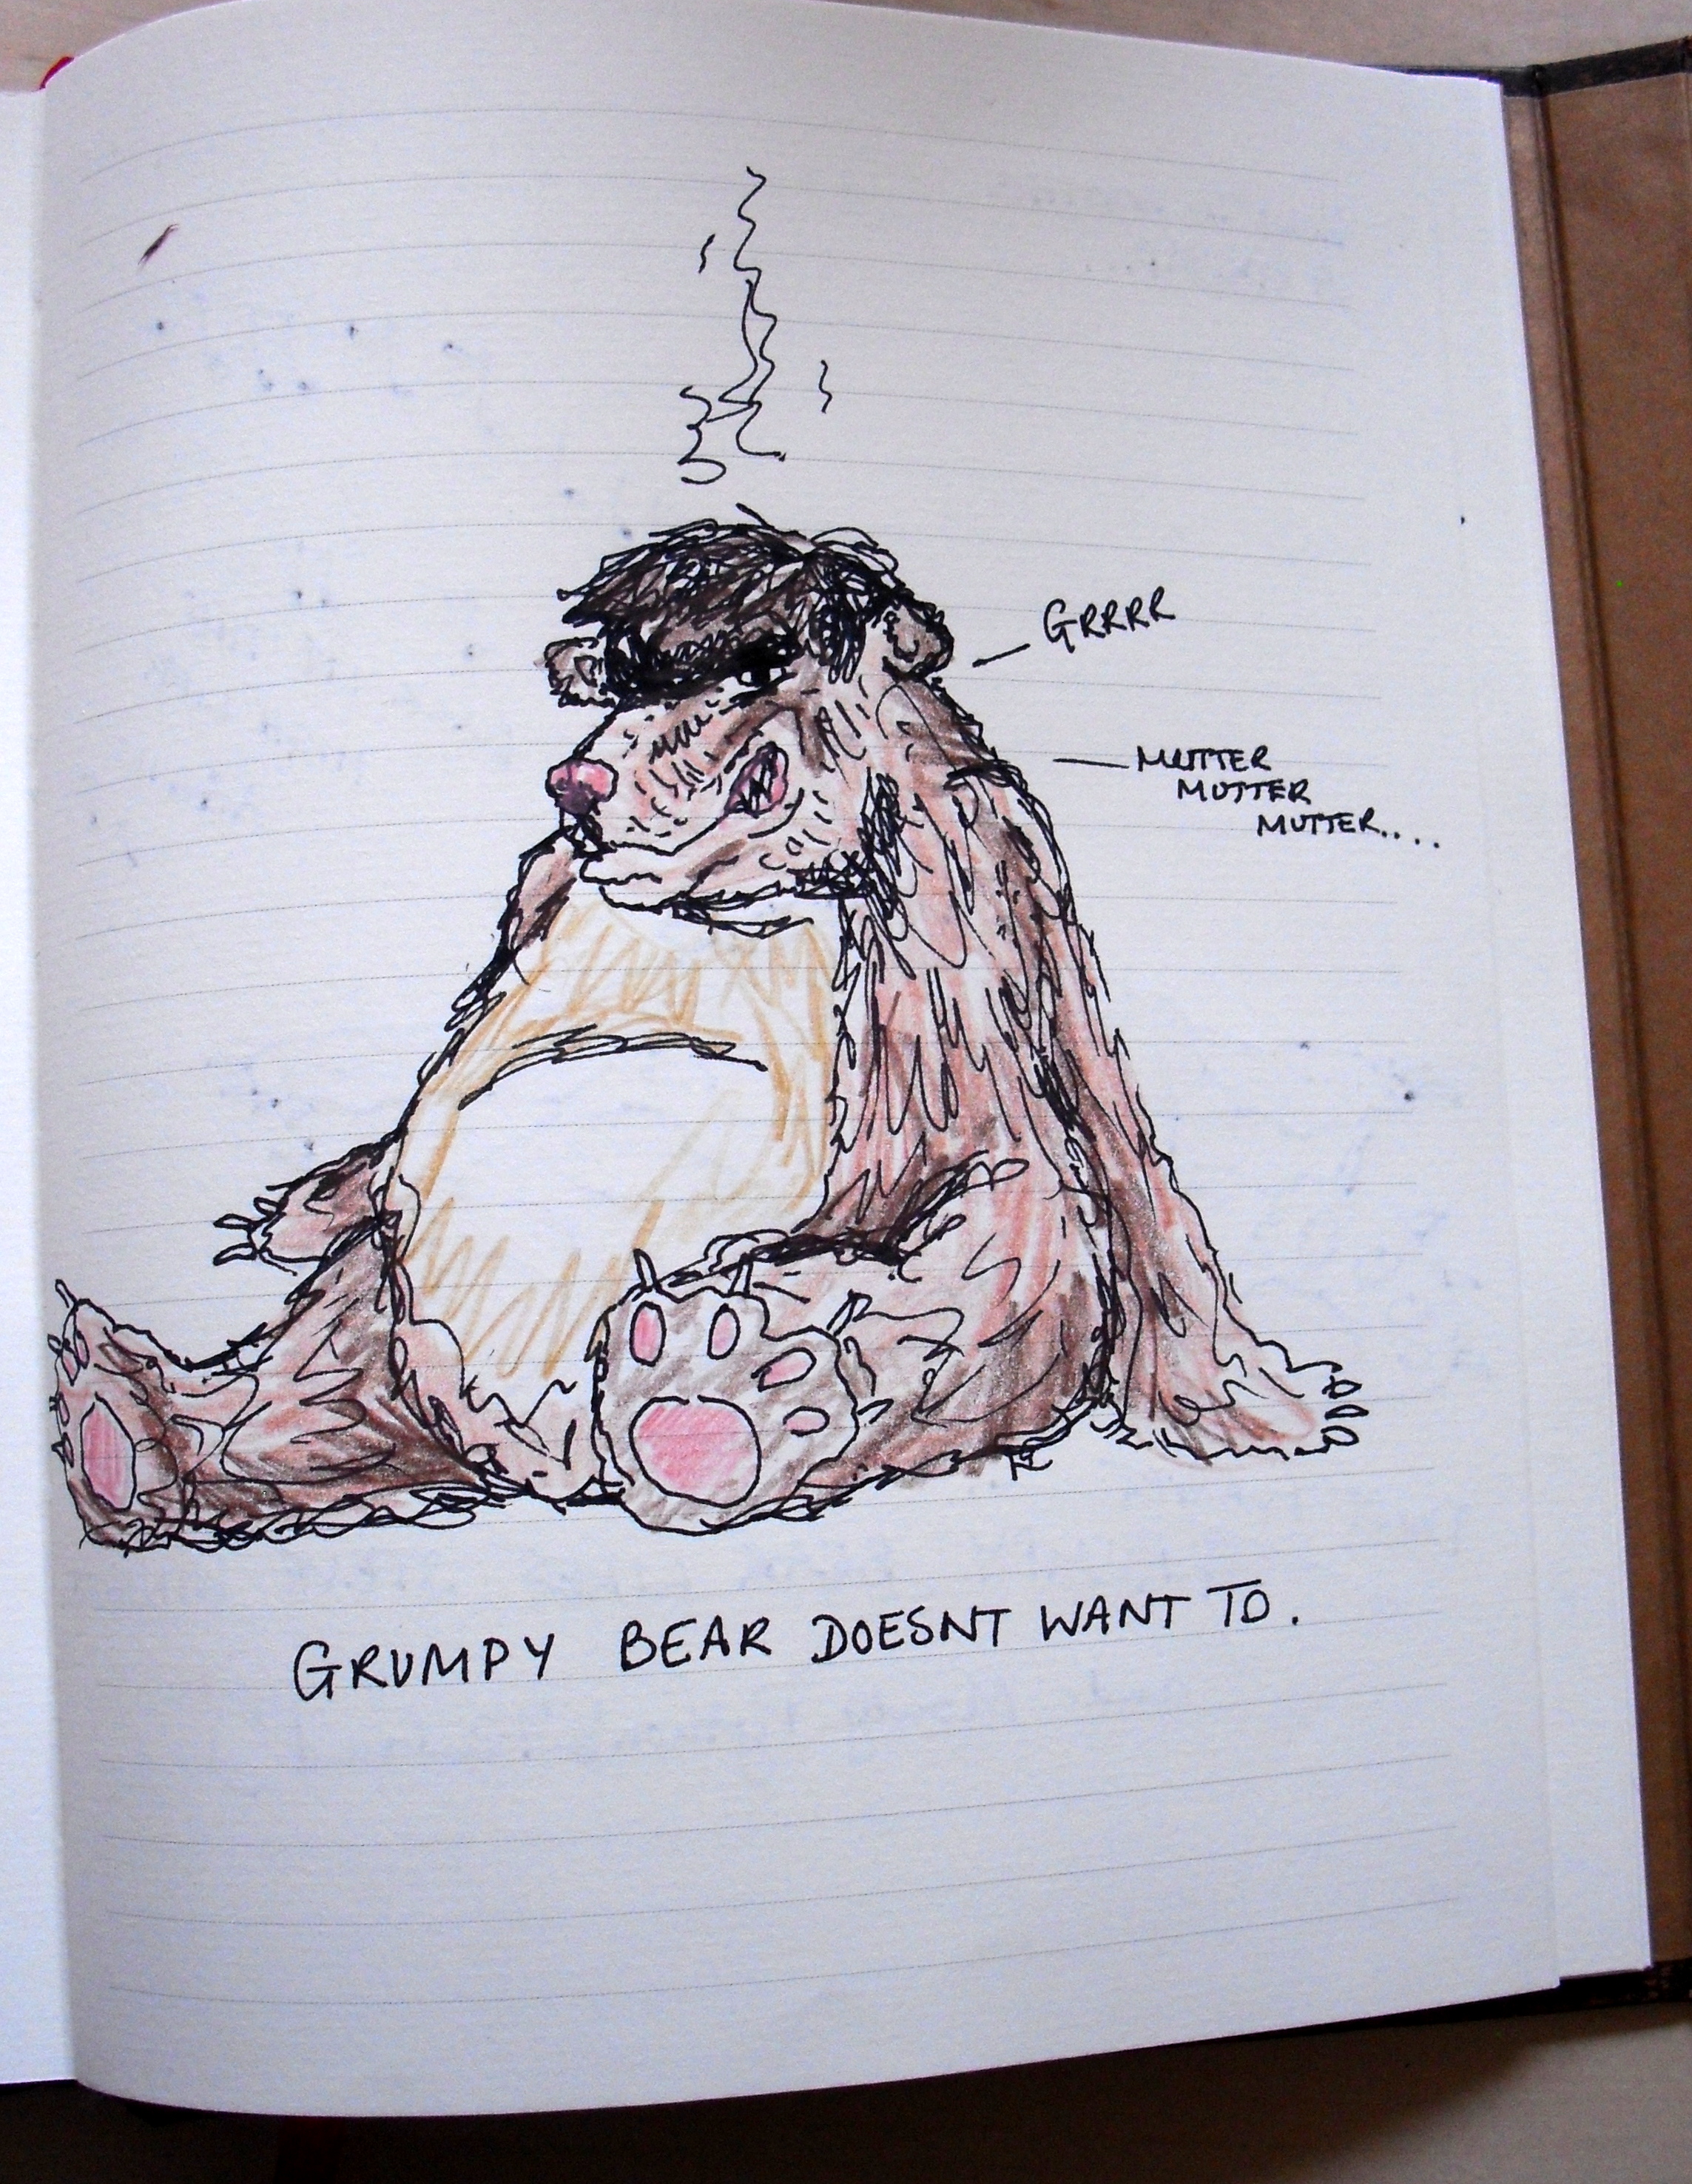 GRRRR
MUTTER
MUTTER
MUTTER....
GRUMPY BEAR DOESNT WANT TO.